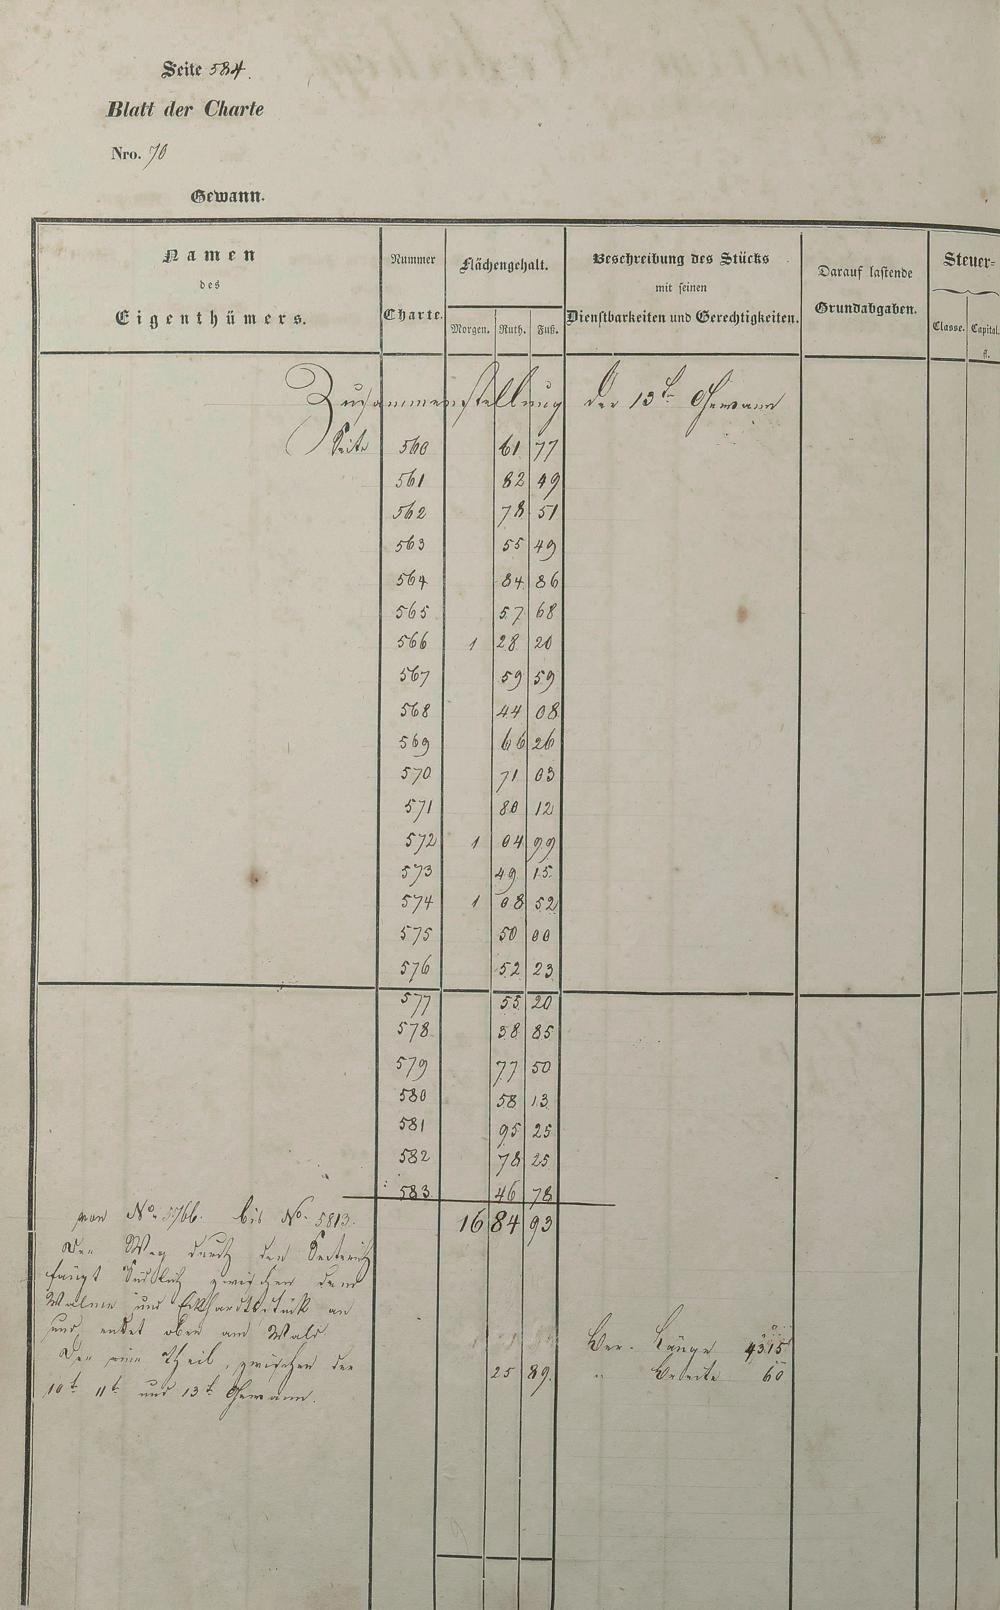 Seite 584.
Blatt der Charte
Nro. 70
Gewann.
Namen des Eigenthümers.
Nummer Charte.
Flächengehalt.
Morgen. Ruth. Fuß.
Beschreibung des Stücks mit seinen Dienstbarkeiten und Gerechtigkeiten.
Darauf lastende Grundabgaben.
Steuer-
Classe. Capital. fl.
Zusammenstellung der 13t. Gewann
Seite 560 61 77
561 82 49
562 78 51
563 55 49
564 84 86
565 57 68
566 1 28 20
567 59 59
568 44 08
569 66 26
570 71 03
571 80 12
572 1 04 99
573 49 15
574 1 08 52
575 50 00
576 52 23
577 55 20
578 38 85
579 77 50
580 58 13
581 95 25
582 78 25
583 46 78
16 84 93
von No. 5766. bis No. 5813.
Der Weg durch den
fängt südlich zwischen dem
und Eckhardtsstück an
und endet oben am Wald
Der eine Theil, zwischen der
10t. 11t. und 13t. Gewann.
25 89.
Länge 4315
" Breite 60